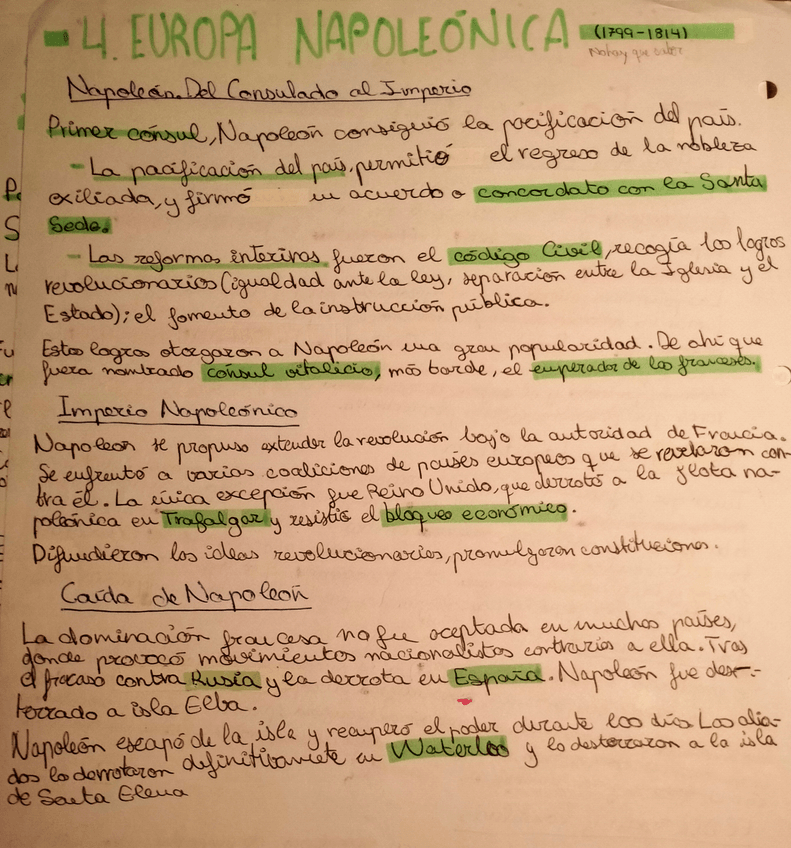 4. EUROPA NAPOLEÓNICA (1799-1814)
No hay que saber
Napoleón. Del Consulado al Imperio
Primer cónsul, Napoleón consiguió la pacificación del país.
- La pacificación del país, permitió el regreso de la nobleza
exiliada, y firmó un acuerdo o concordato con la Santa
Sede.
- Las reformas interinas fueron el código Civil, recogía los logros
revolucionarios (igualdad ante la ley, separación entre la Iglesia y el
Estado); el fomento de la instrucción pública.
Estos logros otorgaron a Napoleón una gran popularidad. De ahí que
fuera nombrado cónsul vitalicio, más tarde, el emperador de los franceses.
Imperio Napoleónico
Napoleón se propuso extender la revolución bajo la autoridad de Francia.
Se enfrentó a varias coaliciones de países europeos que se revelaron con-
tra él. La única excepción fue Reino Unido, que derrotó a la flota na-
poleónica en Trafalgar y resistió el bloqueo económico.
Difundieron las ideas revolucionarias, promulgaron constituciones.
Caída de Napoleón
La dominación francesa no fue aceptada en muchos países,
donde provocó movimientos nacionalistas contrarios a ella. Tras
el fracaso contra Rusia y la derrota en España. Napoleón fue des-
terrado a isla Elba.
Napoleón escapó de la isla y recuperó el poder durante 100 días. Los alia-
dos lo derrotaron definitivamente en Waterloo y lo desterraron a la isla
de Santa Elena